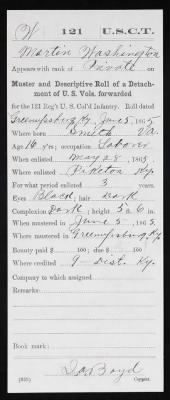 W 121 U.S.C.T.
Martin Washington
Appears with rank of Private on
Muster and Descriptive Roll of a Detach-
ment of U. S. Vols. forwarded
for the 121 Reg't U. S. Col'd Infantry. Roll dated
Greenupsburg, Ky. June 5, 1865
Where born Smith Va.
Age 16 y'rs; occupation Laborer
When enlisted May 28, 1865
Where enlisted Piketon Ky.
For what period enlisted 3 years.
Eyes Black; hair Dark
Complexion Dark; height 5 ft. 6 in.
When mustered in June 5, 1865
Where mustered in Greenupsburg, Ky.
Bounty paid $ 100; due $ 100
Where credited 9 Dist. Ky.
Company to which assigned
Remarks:
Book mark:
Boyd
Copyist.